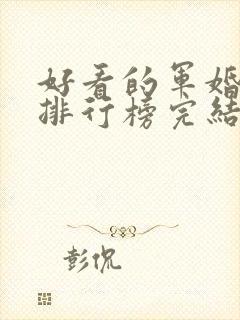 好看的军婚
排行榜完结
彭侃